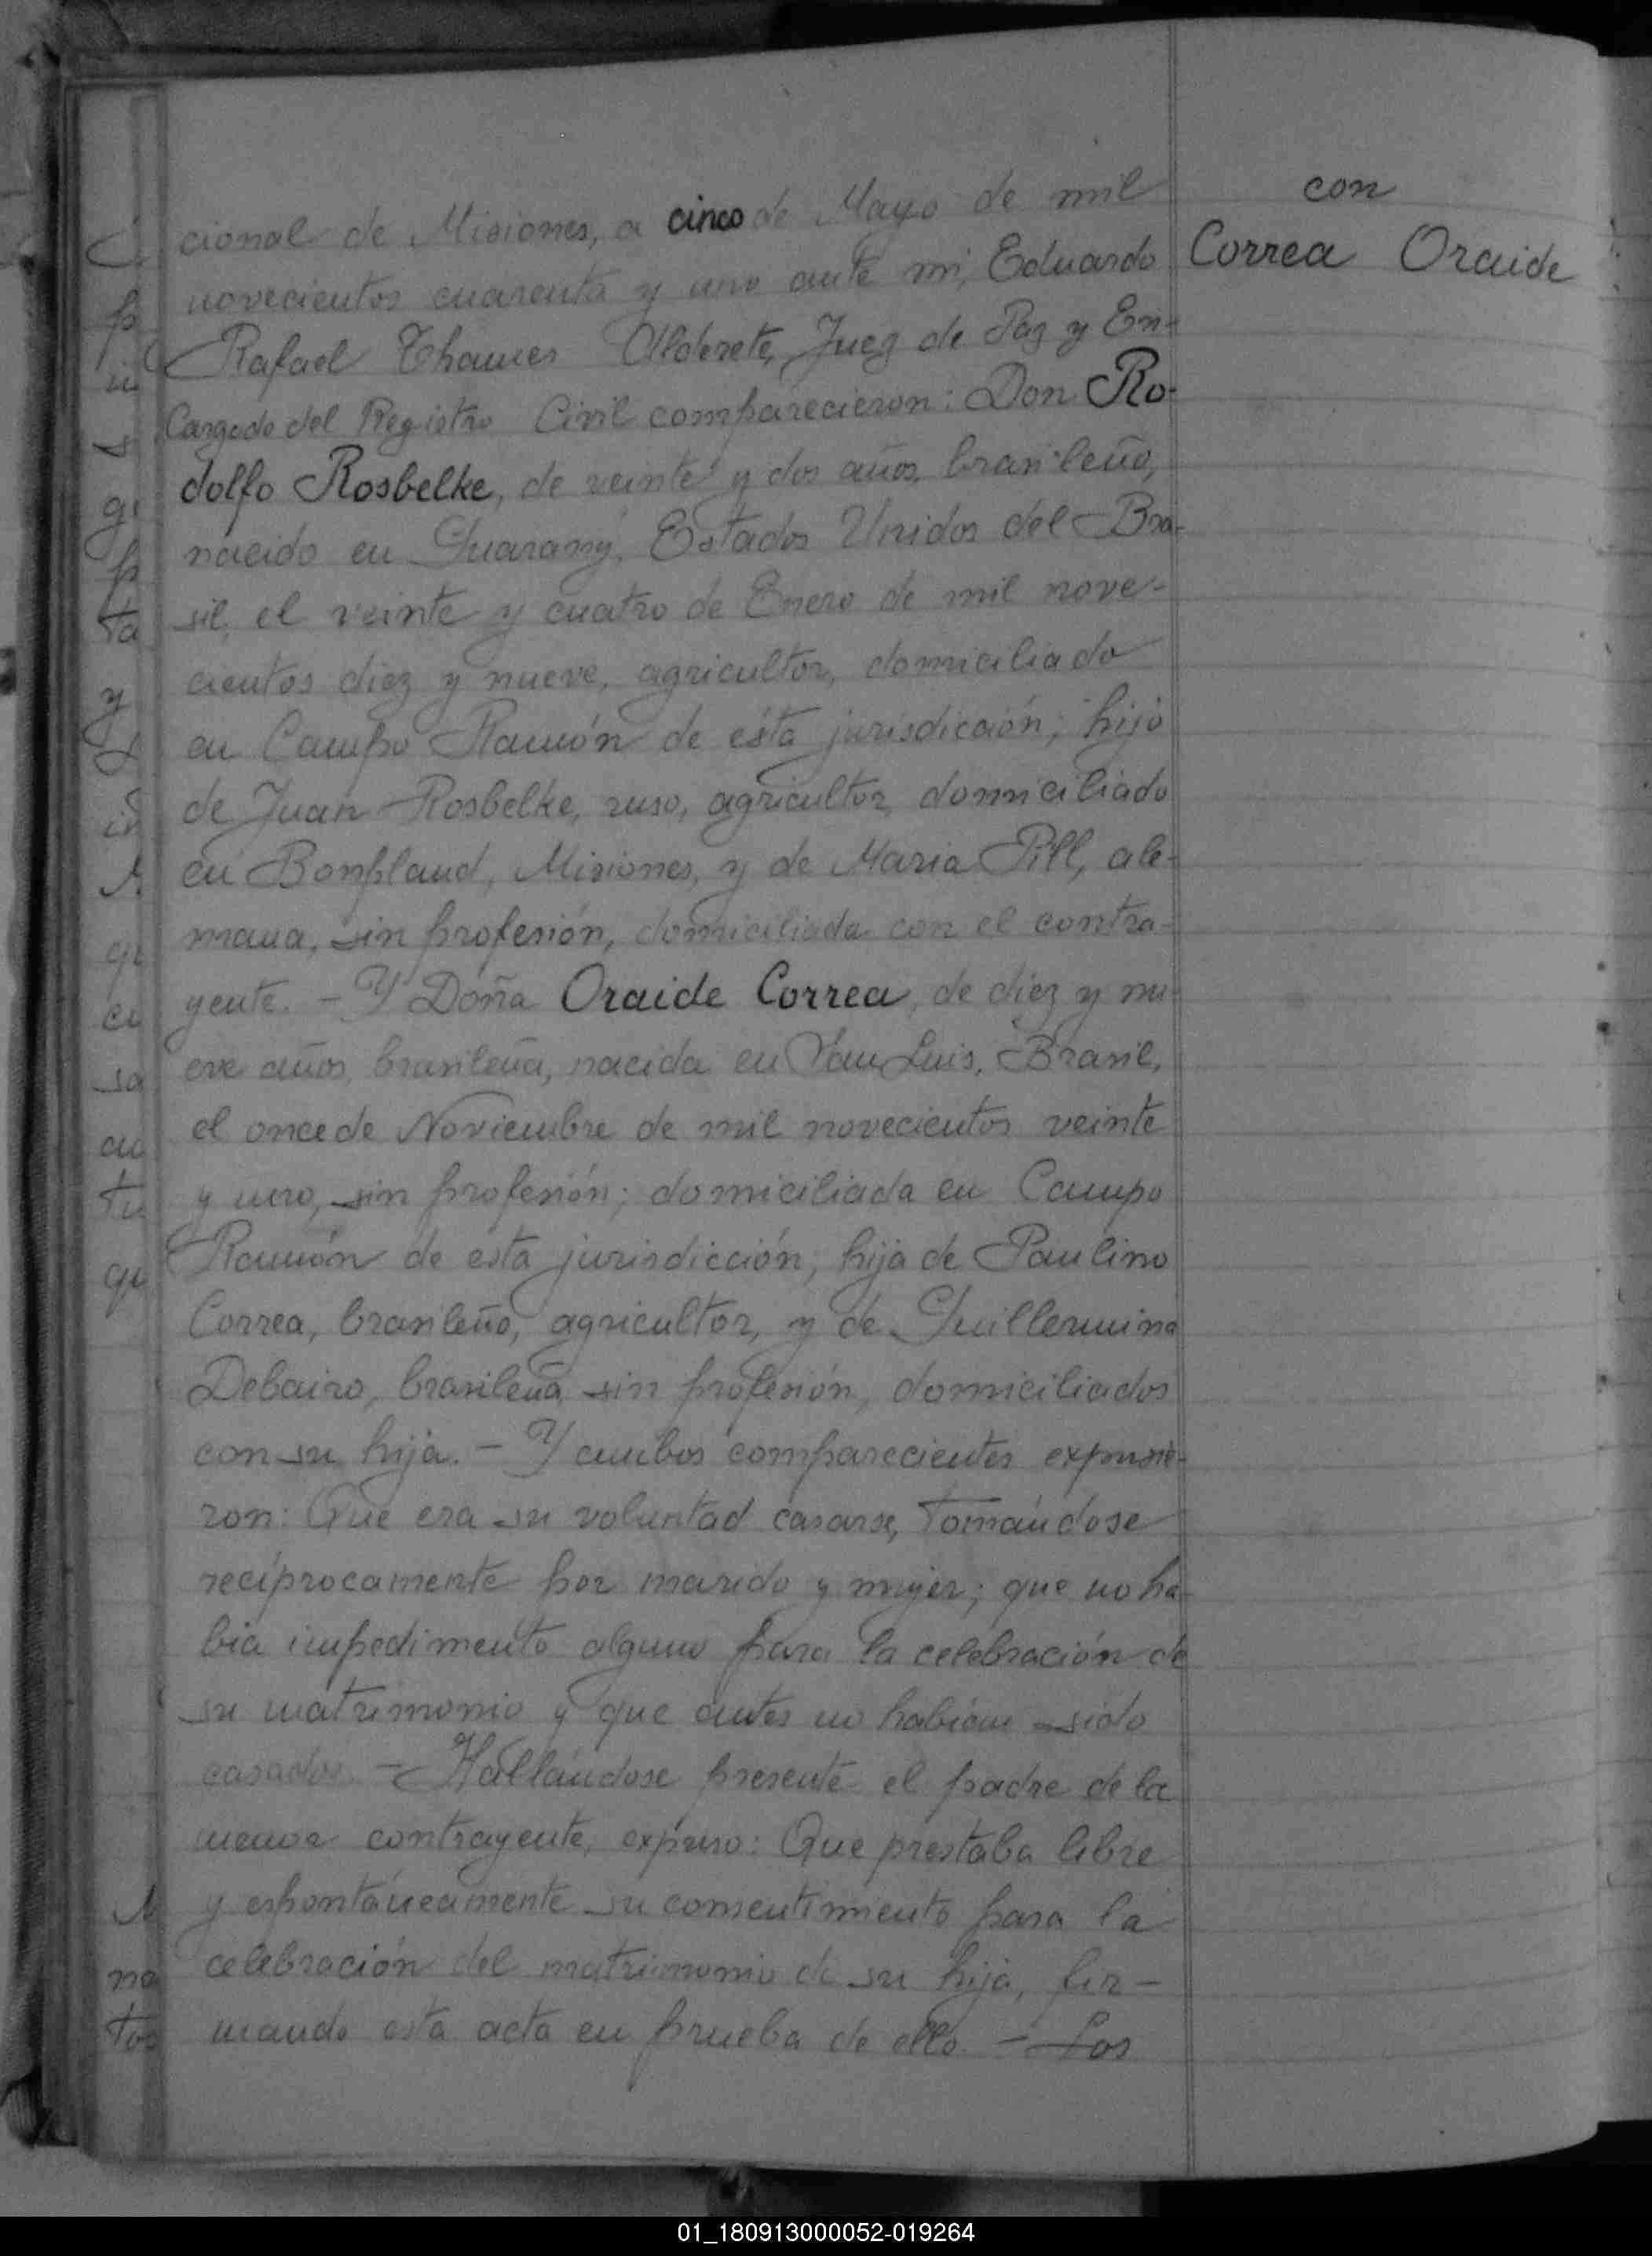 con
Correa Oraide
cional de Misiones, a cinco de Mayo de mil
novecientos cuarenta y uno ante mi, Eduardo
Rafael Thames Alderete, Juez de Paz y En-
cargado del Registro Civil comparecieron: Don Ro-
dolfo Rosbelke, de veinte y dos años, brasileño,
nacido en Guarany, Estados Unidos del Bra-
sil, el veinte y cuatro de Enero de mil nove-
cientos diez y nueve, agricultor, domiciliado
en Campo Ramón de ésta jurisdicción; hijo
de Juan Rosbelke, ruso, agricultor, domiciliado
en Bonpland, Misiones, y de Maria Pill, ale-
mana, sin profesión, domiciliada con el contra-
yente. - Y Doña Oraide Correa, de diez y nu-
eve años, brasileña, nacida en San Luis, Brasil,
el once de Noviembre de mil novecientos veinte
y uno, sin profesión; domiciliada en Campo
Ramón de ésta jurisdicción; hija de Paulino
Correa, brasileño, agricultor, y de Guillermina
Debairo, brasileña, sin profesión, domiciliados
con su hija. - Y ambos comparecientes expusie-
ron: Que era su voluntad casarse, tomándose
recíprocamente por marido y mujer; que no ha-
bia impedimento alguno para la celebración de
su matrimonio y que antes no habían sido
casados. - Hallándose presente el padre de la
menor contrayente, expuso: Que prestaba libre
y espontáneamente su consentimiento para la
celebración del matrimonio de su hija, fir-
mando esta acta en prueba de ello. - Los
01_180913000052-019264